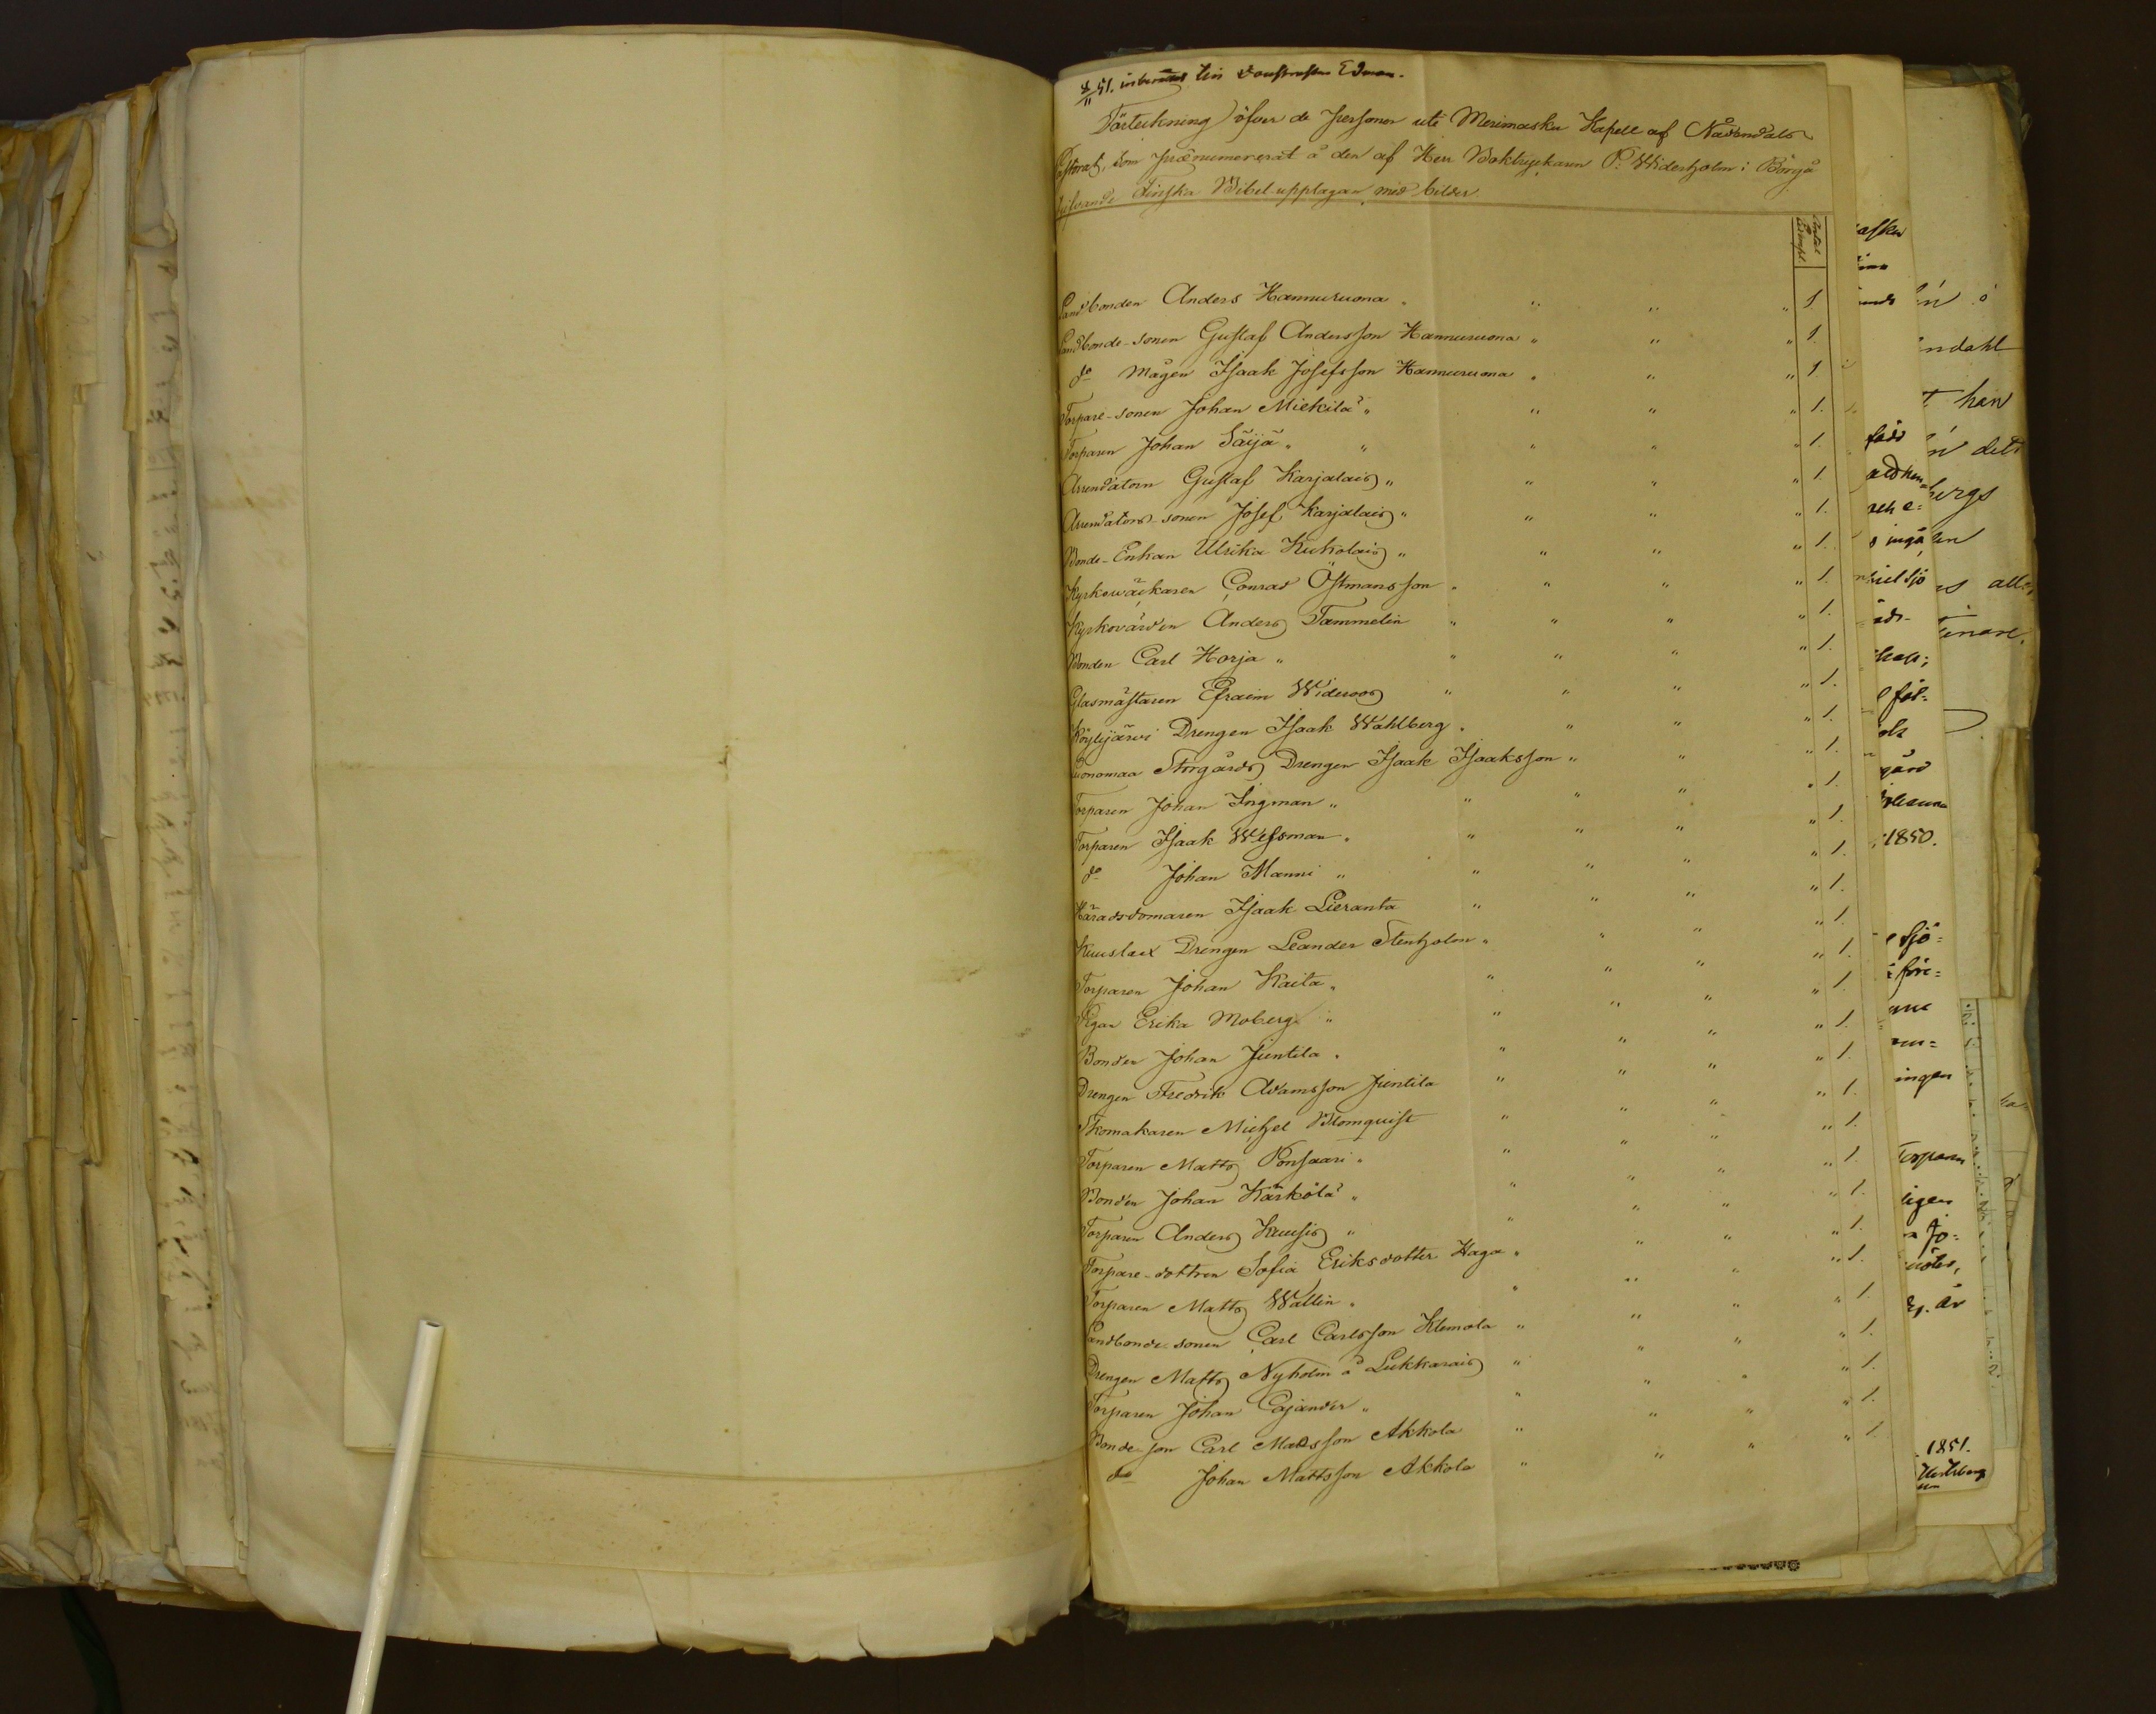 51. till Edman.
Förteckning öfver de Personer uti Merimasku Kapell af Nådendals
Pastorat, som prænumererat å den af Herr Boktryckaren P. Widerholm i Borgå
utgifvande Finska Bibel-upplagan med bilder.
Antal Exempl.
Landbonden Anders Hannuruona " " " " 1.
Landbonde-sonen Gustaf Andersson Hannuruona " " " 1.
do Mågen Isaak Josefsson Hannuruona " " " 1.
Torpare-sonen Johan Miekilä " " " " 1.
Torparen Johan Säijä " " " " " 1.
Arrendatorn Gustaf Karjalais " " " " 1.
Arrendators-sonen Josef Karjalais " " " " 1.
Bonde-Enkan Ulrika Kukolais " " " " 1.
Kyrkowäckaren Conrad Östmansson " " " " 1.
Kyrkovärden Anders Tammelin " " " " 1.
Bonden Carl Horja " " " " " 1.
Glasmästaren Efraim Wideroos " " " " 1.
Köylijärvi Drengen Isaak Wahlberg " " " " 1.
Luonomaa Storgårds Drengen Isaak Isaaksson " " " 1.
Torparen Johan Ingman " " " " " 1.
Torparen Isaak Wessman " " " " " 1.
do Johan Manni " " " " " 1.
Häradsdomaren Isaak Lieranta " " " " 1.
Kuuslax Drengen Leander Stenholm " " " " 1.
Torparen Johan Kaita " " " " " 1.
Pigan Erika Moberg " " " " " 1.
Bonden Johan Juntila " " " " " 1.
Drengen Fredrik Adamsson Juntila " " " " 1.
Skomakaren Michel Blomquist " " " " 1.
Torparen Matts Ponsaari " " " " " 1.
Bonden Johan Kärkölä " " " " " 1.
Torparen Anders Kuusis " " " " " 1.
Torpare-dottren Sofia Eriksdotter Haga " " " 1.
Torparen Matts Wallin " " " " " 1.
Landbonde-sonen Carl Carlsson Klemola " " " 1.
Drengen Matts Nyholm å Lukkarais " " " 1.
Torparen Johan Cajander " " " " " 1.
Bonde-son Carl Mattsson Akkola " " " " 1.
do Johan Mattsson Akkola " " " " 1.
ndahl
han
det
bergs
1850.
ingen
Torparen
ligen
är
1851.